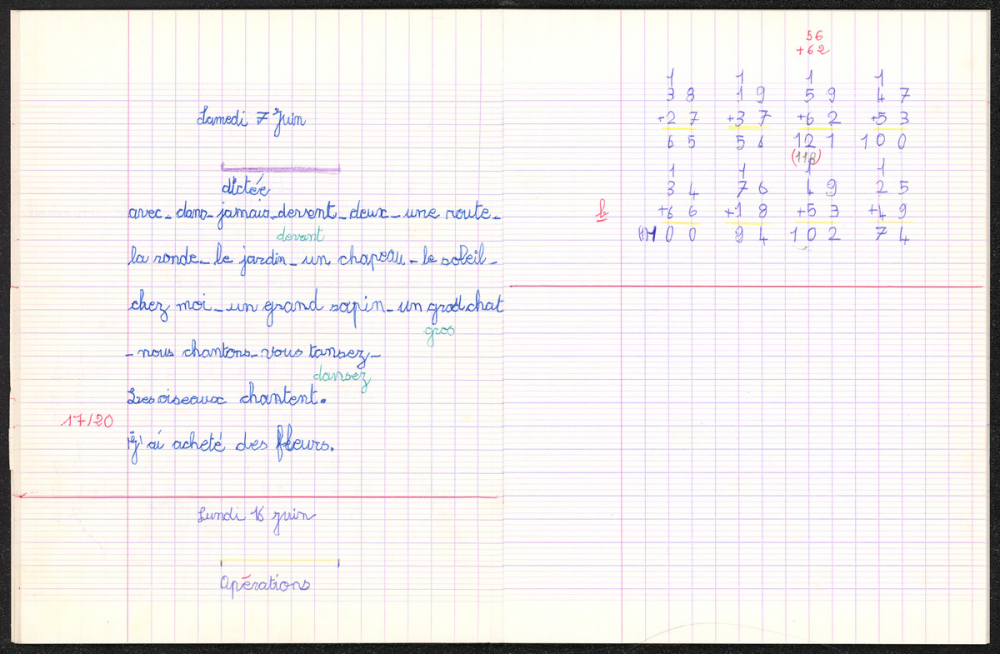 Samedi 7 Juin
dictée
avec_dans_jamais_devent_deux_une route_
devant
la ronde_le jardin_un chapeau_le soleil_
chez moi_un grand sapin_un chat
gros
_nous chantons_vous tansez_
dansez
Les oiseaux chantent.
17/20
j'ai acheté des fleurs.
Lundi 16 juin
Opérations
56
+62
1 1 1 1
38 19 59 47
+27 +37 +62 +53
65 56 121 100
(118)
1 1 1 1
34 76 49 25
b +66 +18 +53 +49
100 94 102 74